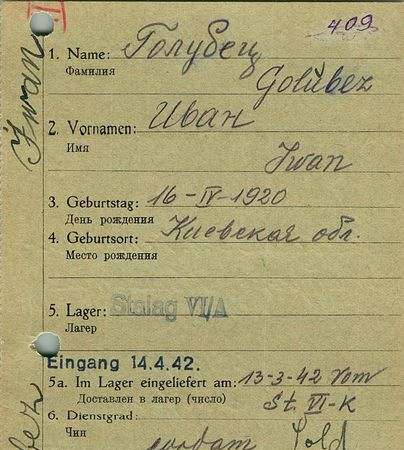 Iwan
409
1. Name: Голубец
Фамилия
Golubez
2. Vornamen: Иван
Имя
Iwan
3. Geburtstag: 16-IV-1920
День рождения
4. Geburtsort: Киевская обл.
Место рождения
5. Lager: Stalag VI/A
Лагер
Eingang 14.4.42.
5a. Im Lager eingeliefert am: 13-3-42 vom
Доставлен в лагер (число) St. VI-K
6. Dienstgrad:
Чин солдат Sold